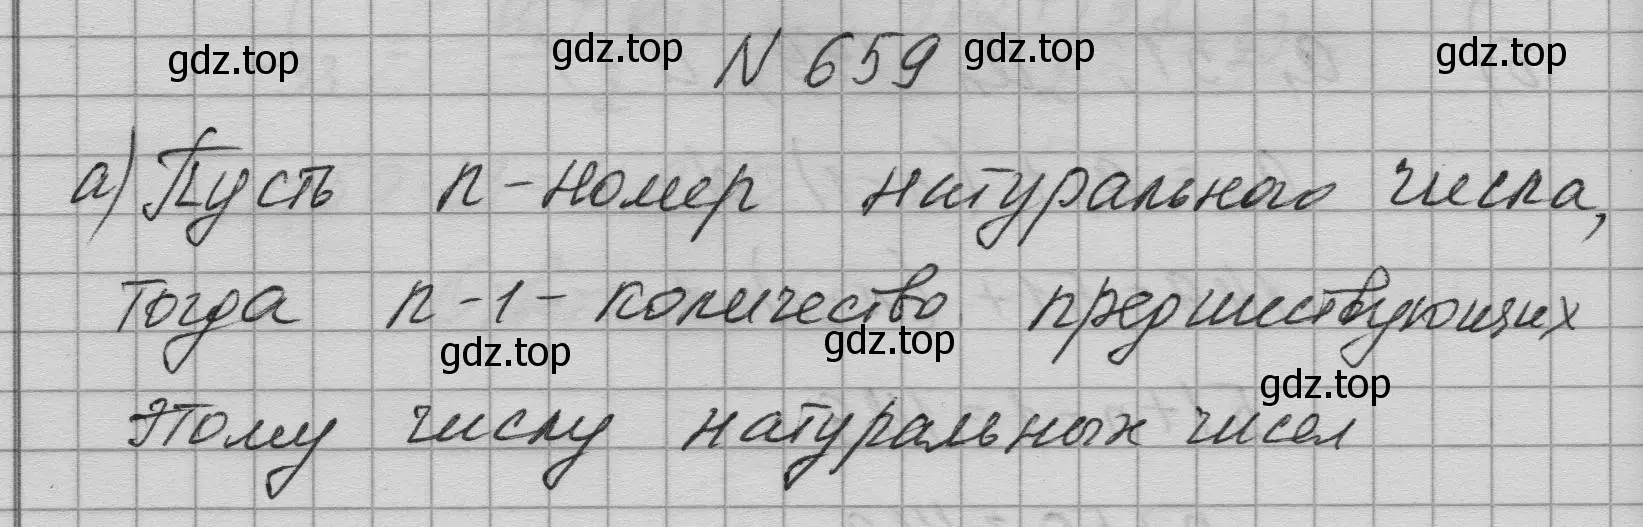 gdz.top gdz.top N 659 gdz.top gdz.top
а) Пусть n - номер натурального числа,
тогда n - 1 - количество предшествующих
gdz.top gdz.top gdz.top
этому числу натуральных чисел